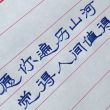 愿你遍历山河
觉得人间值得